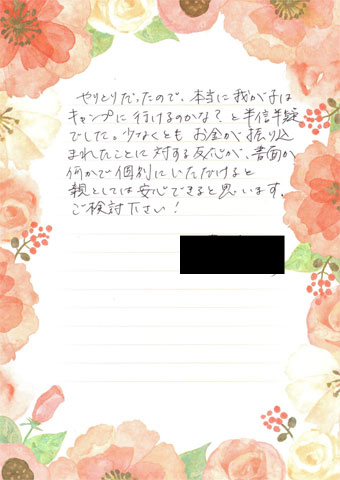 やりとりだったので、本当に我が子は
キャンプに行けるのかな？と半信半疑
でした。少なくとも お金が振り込
まれたことに対する反応が、書面か
何かで個別にいただけると
親としては安心できると思います。
ご検討下さい！